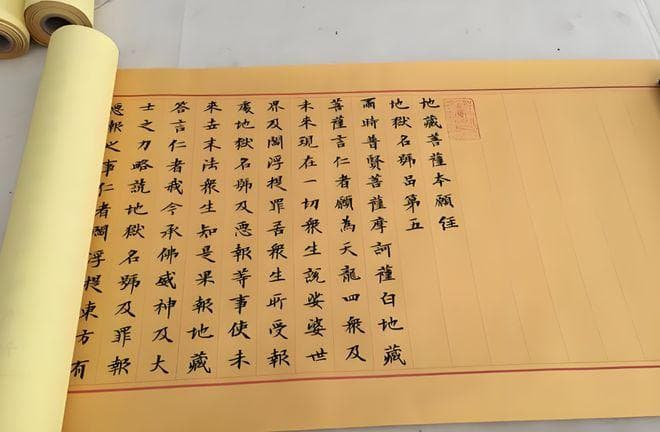 地藏菩薩本願經
地獄名號品第五
爾時普賢菩薩摩訶薩白地藏
菩薩言仁者願為天龍四衆及
未來現在一切衆生說娑婆世
界及閻浮提罪苦衆生所受報
處地獄名號及惡報等事使未
來世末法衆生知是果報地藏
答言仁者我今承佛威神及大
士之力略說地獄名號及罪報
惡報之事仁者閻浮提東方有